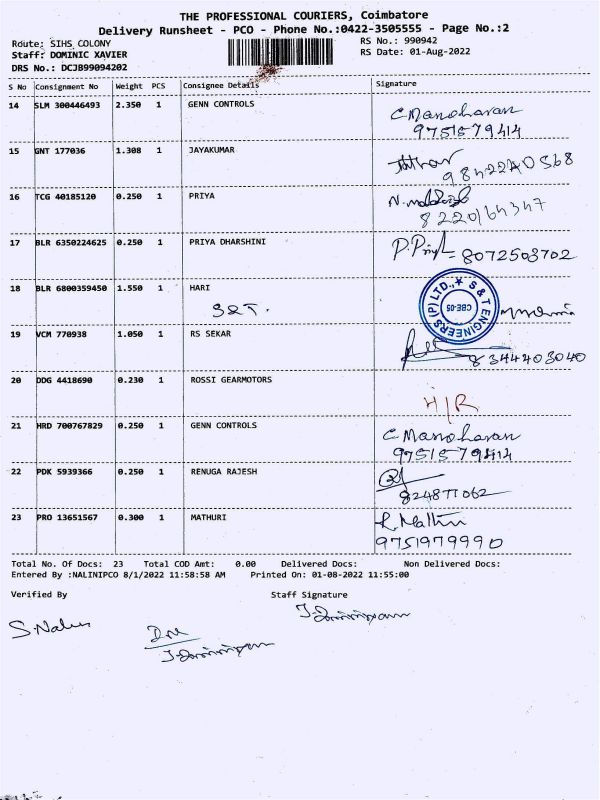 THE PROFESSIONAL COURIERS, Coimbatore
Delivery Runsheet - PCO - Phone No.:0422-3505555 - Page No.:2
Route: SIHS COLONY RS No.: 990942
Staff: DOMINIC XAVIER RS Date: 01-Aug-2022
DRS No.: DCJB99094202
S No Consignment No Weight PCS Consignee Details Signature
14 SLM 300446493 2.350 1 GENN CONTROLS C Manoharan
9751579414
15 GNT 177036 1.308 1 JAYAKUMAR
9842240568
16 TCG 40185120 0.250 1 PRIYA
8220164347
17 BLR 6350224625 0.250 1 PRIYA DHARSHINI P. Priya 8072503702
18 BLR 6800359450 1.550 1 HARI
S&T. S & T ENGINEERS (P) LTD., CBE-05
19 VCM 770938 1.050 1 RS SEKAR
8344403040
20 DDG 4418690 0.230 1 ROSSI GEARMOTORS
H/R
21 HRD 700767829 0.250 1 GENN CONTROLS C Manoharan
9751579414
22 PDK 5939366 0.250 1 RENUGA RAJESH
8248771062
23 PRO 13651567 0.300 1 MATHURI R. Mathuri
9751979990
Total No. Of Docs: 23 Total COD Amt: 0.00 Delivered Docs: Non Delivered Docs:
Entered By :NALINIPCO 8/1/2022 11:58:58 AM Printed On: 01-08-2022 11:55:00
Verified By Staff Signature
S. Nalini